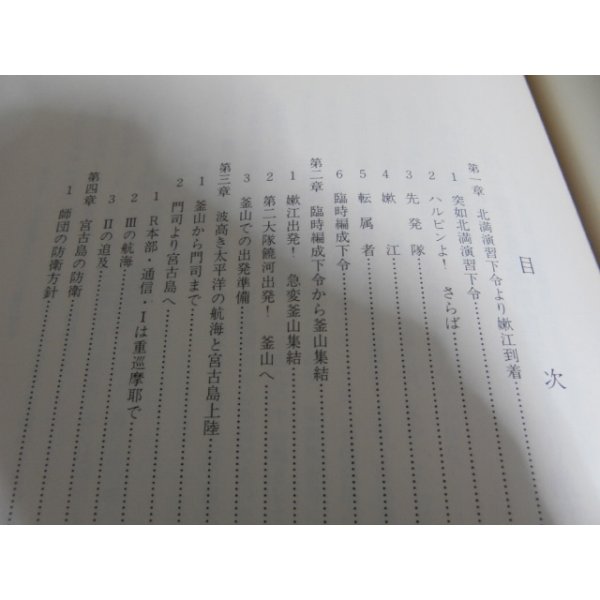 目次
第一章 北満演習下令より嫩江到着
1 突如北満演習下令
2 ハルピンよ! さらば
3 先発隊
4 嫩江
5 転属者
6 臨時編成下令
第二章 臨時編成下令から釜山集結
1 嫩江出発! 急変釜山集結
2 第二大隊饒河出発! 釜山へ
3 釜山での出発準備
第三章 波高き太平洋の航海と宮古島上陸
1 釜山から門司まで
2 門司より宮古島へ
1 R本部・通信・Iは重巡摩耶で
2 Ⅲの航海
3 Ⅱの追及
第四章 宮古島の防衛
1 師団の防衛方針